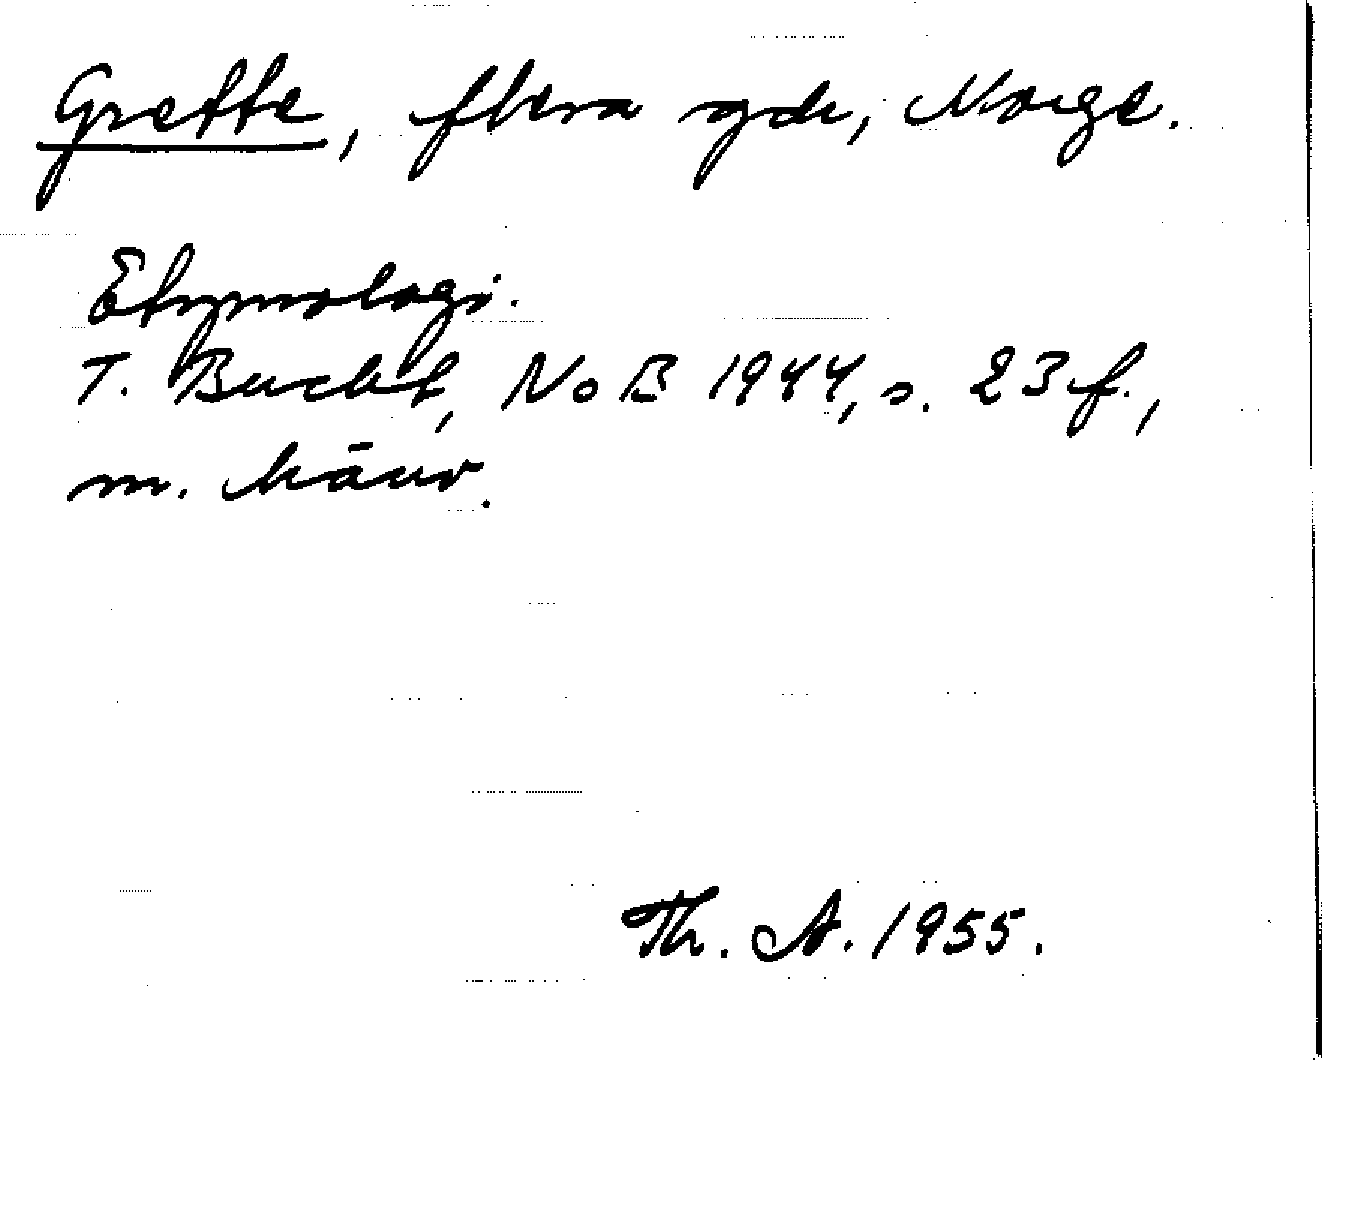 Grette, flera gdr, Norge.
Etymologi.
T. Bucht, NoB 1944, s. 23 f.,
m. hänv.
Th. A. 1955.